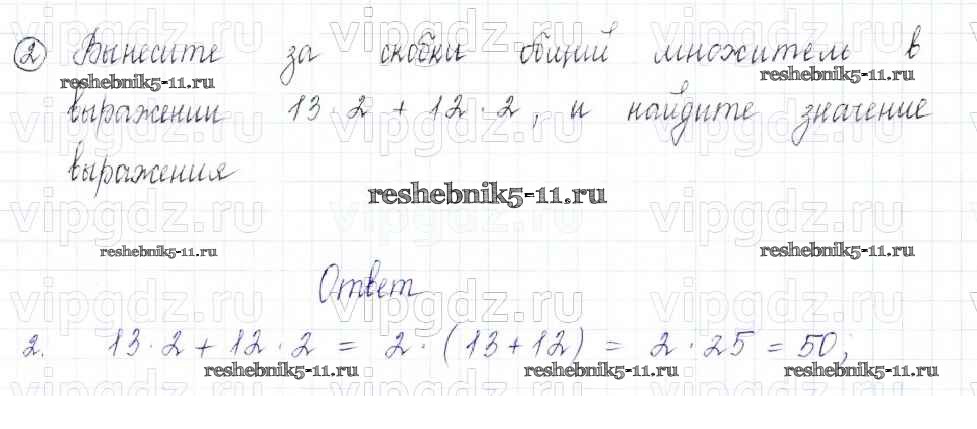 ② Вынесите за скобки общий множитель в
reshebnik5-11.ru reshebnik5-11.ru
выражении 13 · 2 + 12 · 2, и найдите значение
выражения
reshebnik5-11.ru
reshebnik5-11.ru reshebnik5-11.ru
Ответ
2. 13 · 2 + 12 · 2 = 2 · (13 + 12) = 2 · 25 = 50;
reshebnik5-11.ru reshebnik5-11.ru reshebnik5-11.ru
vipgdz.ru vipgdz.ru vipgdz.ru vipgdz.ru